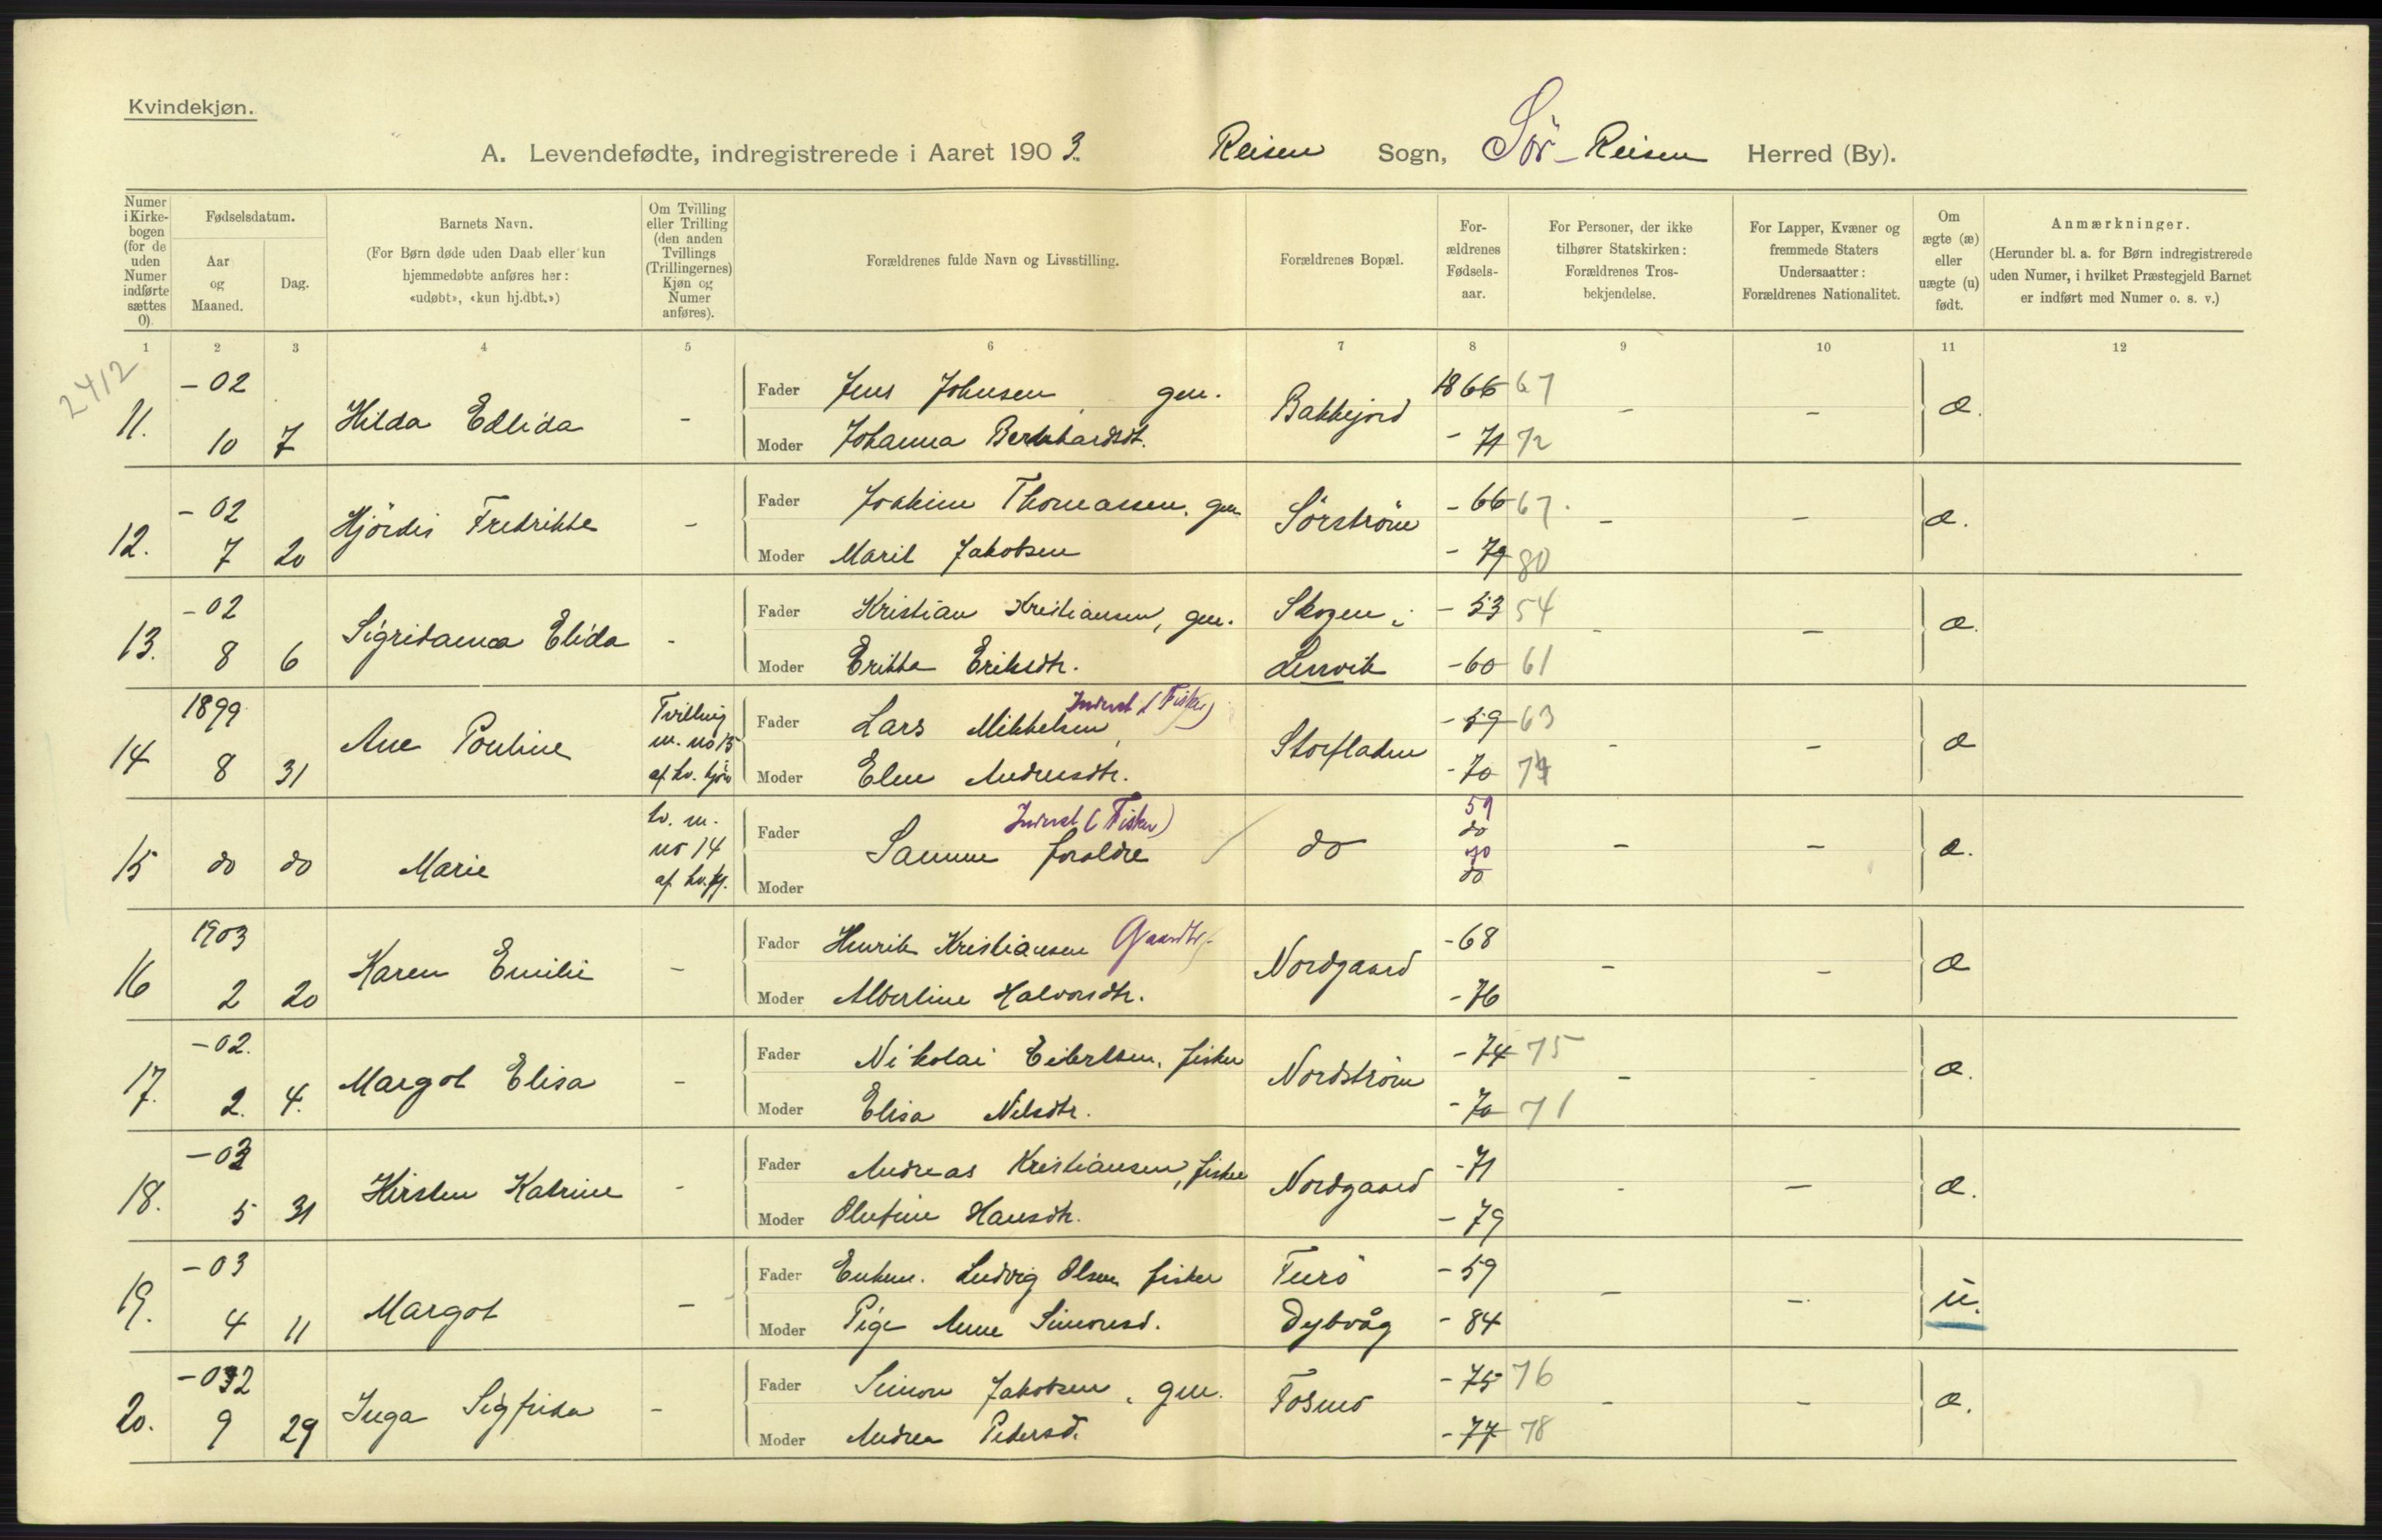 Kvindekjøn.
A. Levendefødte, indregistrerede i Aaret 1903. Reisen Sogn, Sör-Reisen Herred (By).
Numer i Kirkebogen (for de uden Numer indførte sættes 0).
Fødselsdatum.
Aar og Maaned.
Dag.
Barnets Navn.
(For Børn døde uden Daab eller kun hjemmedøbte anføres her: «udøbt», «kun hj.dbt.»)
Om Tvilling eller Trilling (den anden Tvillings (Trillingernes) Kjøn og Numer anføres).
Forældrenes fulde Navn og Livsstilling.
Forældrenes Bopæl.
Forældrenes Fødselsaar.
For Personer, der ikke tilhører Statskirken: Forældrenes Trosbekjendelse.
For Lapper, Kvæner og fremmede Staters Undersaatter: Forældrenes Nationalitet.
Om ægte (æ) eller uægte (u) født.
Anmærkninger.
(Herunder bl. a. for Børn indregistrerede uden Numer, i hvilket Præstegjeld Barnet er indført med Numer o. s. v.)
1 2 3 4 5 6 7 8 9 10 11 12
2412
11. -02 10 7 Hilda Edlida - Fader Jens Johnsen, gm. Bakkejord 1866 67 - - æ.
Moder Johanna Bernhardsdt. - 71 72
12. -02 7 20 Hjördis Fredrikke - Fader Joakim Thomassen, gm Sörström - 66 67. - - æ.
Moder Marit Jakobsen - 79 80
13. -02 8 6 Sigridanna Elida - Fader Kristian Kristiansen, gm. Skogen i - 53 54 - - æ.
Moder Erikka Eriksdtr. Lenvik - 60 61
14 1899 8 31 Ane Pouline Tvilling m. no 15 af kv. kjön Fader Lars Mikkelsen, Inderst (Fisker) Storfladen - 59 63 - - æ
Moder Elen Andersdtr. - 70 74
15 do do Marie tv. m. no 14 af kv. kj. Fader Samme foraldre Inderst (Fisker) do 59 do 70 do - - æ.
Moder
16 1903 2 20 Karen Emilie - Fader Henrik Kristiansen Gaardbr. Nordgaard - 68 - - æ
Moder Albertine Halvorsdtr. - 76
17. -02. 2. 4. Margot Elisa - Fader Nikolai Eilertsen, fisker Nordström - 74 75 - - æ.
Moder Elisa Nilsdtr. - 70 71
18. -03 5 31 Kirsten Katrine - Fader Andreas Kristiansen, fisker Nordgaard - 71 - - æ.
Moder Olufine Hansdtr. - 79
19. -03 4 11 Margot - Fader Enkem. Ludvig Olsen fisker - 59 - - u.
Moder Pige Anne Simonsd. Dybvåg - 84
20. -032 9 29 Inga Sigfrida - Fader Simon Jakobsen, gm. Fosmo - 75 76 - - æ.
Moder Andrea Pedersd. - 77 78